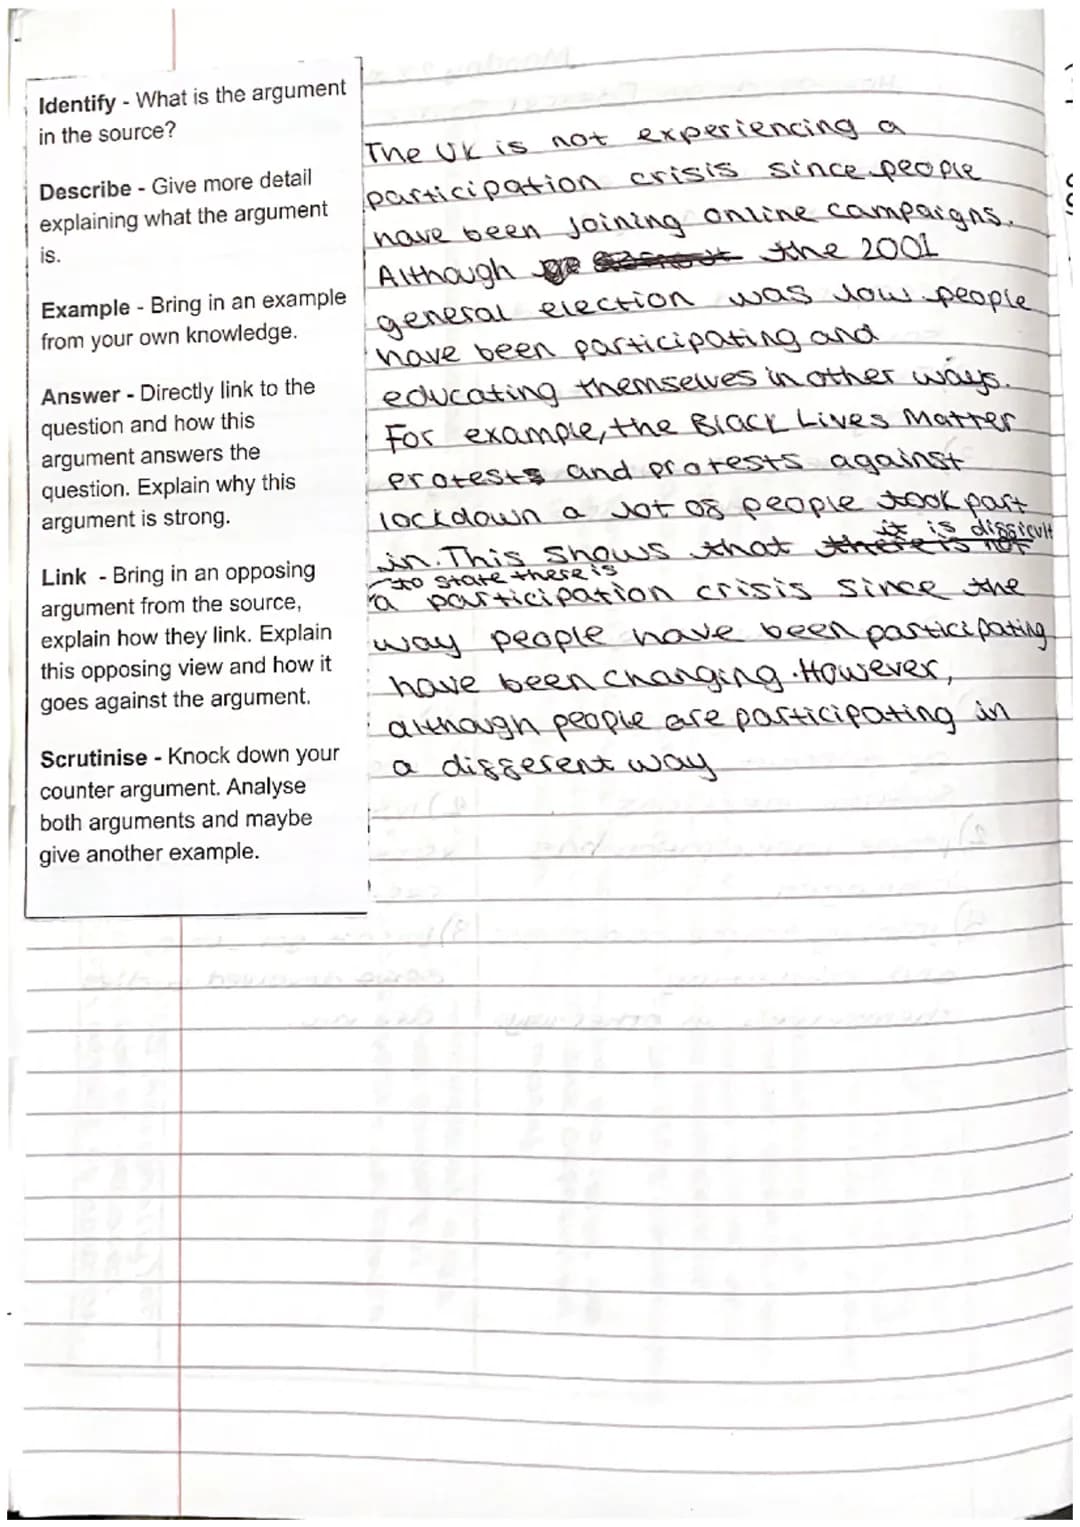 Identify - What is the argument
in the source?
Describe - Give more detail
explaining what the argument
is.
Example - Bring in an example
from your own knowledge.
Answer - Directly link to the
question and how this
argument answers the
question. Explain why this
argument is strong.
Link - Bring in an opposing
argument from the source,
explain how they link. Explain
this opposing view and how it
goes against the argument.
Scrutinise - Knock down your
counter argument. Analyse
both arguments and maybe
give another example.
The UK is not experiencing a
participation crisis since people
have been joining online campaigns.
Although the 2001
general election was low people
have been participating and
educating themselves in other ways.
For example, the Black Lives Matter
protests and protests against
lockdown a lot of people took part
in. This shows that there is not
it is difficult
to state there is
a participation crisis since the
way people have been participating
have been changing. However,
although people are participating in
a different way